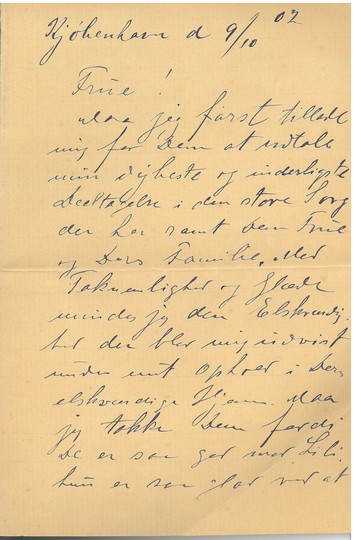 Kjöbenhavn d 9/10 02
Frue!
Maa jeg først tillade
mig for Dem at udtale
min dybeste og inderligste
Deeltagelse i den store Sorg
der har ramt Dem Frue
og Deres Familie. Med
Taknemlighed og Glæde
mindes jeg den Elskværdig-
hed der blev mig indvist
under mit Ophold i Deres
elskværdige Hjem. Maa
jeg takke Dem fordi
De er saa god mod Lili.
hun er saa glad ved at